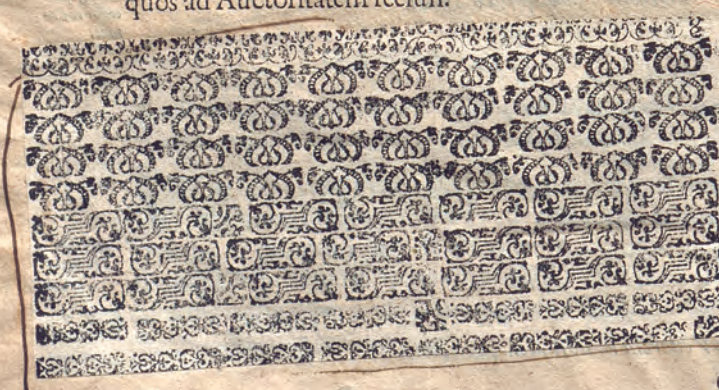 quos ad Auctoritatem